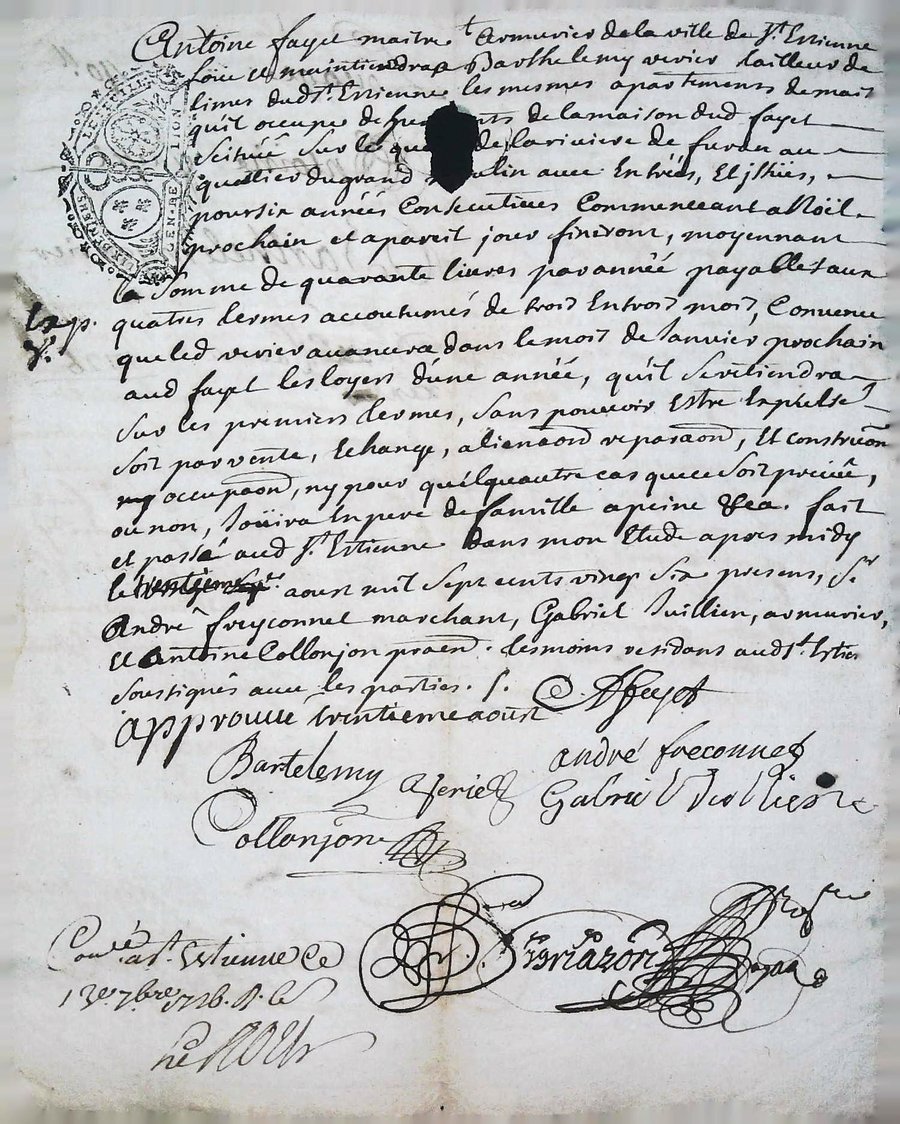 Antoine fayet maitre armurier de la ville de St. Estienne
Loüe et maintiendra a Barthelemy verier tailleur de
limes dud. St. Estienne les mesmes apartements de mais
qu'il occupe de de la maison dud fayet
scitué sur le de la riuiere de furan au
quartier du grand moulin auec Entrées, Et jssües,
pour six années Consecutiues Commenceant a Noël
prochain et a pareil jour finiront, moyennant
la somme de quarante liures par année payables aux
Exp. quatres termes accoutumés de trois En trois mois, Conuenu
que led verier auancera dans le mois de Januier prochain
aud fayet les loyers d'une année, qu'il se retiendra
sur les premiers termes, sans pouuoir Estre Expulsé
soit par vente, Echange, alienaon reparaon, Et construon
ny occupaon, ny pour quelqu'autre cas que ce soit preuëu,
ou non, Joüira En pere de famille a peine &ca. fait
et passé aud St. Estienne dans mon Etude apres midy
le aoust mil sept cents vingt six presens, Sr.
André freyconnet marchant, Gabriel Juillien, armurier,
Et Antoine Collonjon praen. tesmoins residans aud St. Estie
soussignés auec les parties. /.
approuue trentieme aoust
A fayet
Bartelemy Verier
andré freconnet
Gabriel
Collonjon
Conlé a St. Estienne le
13e 7bre 1726. R. les